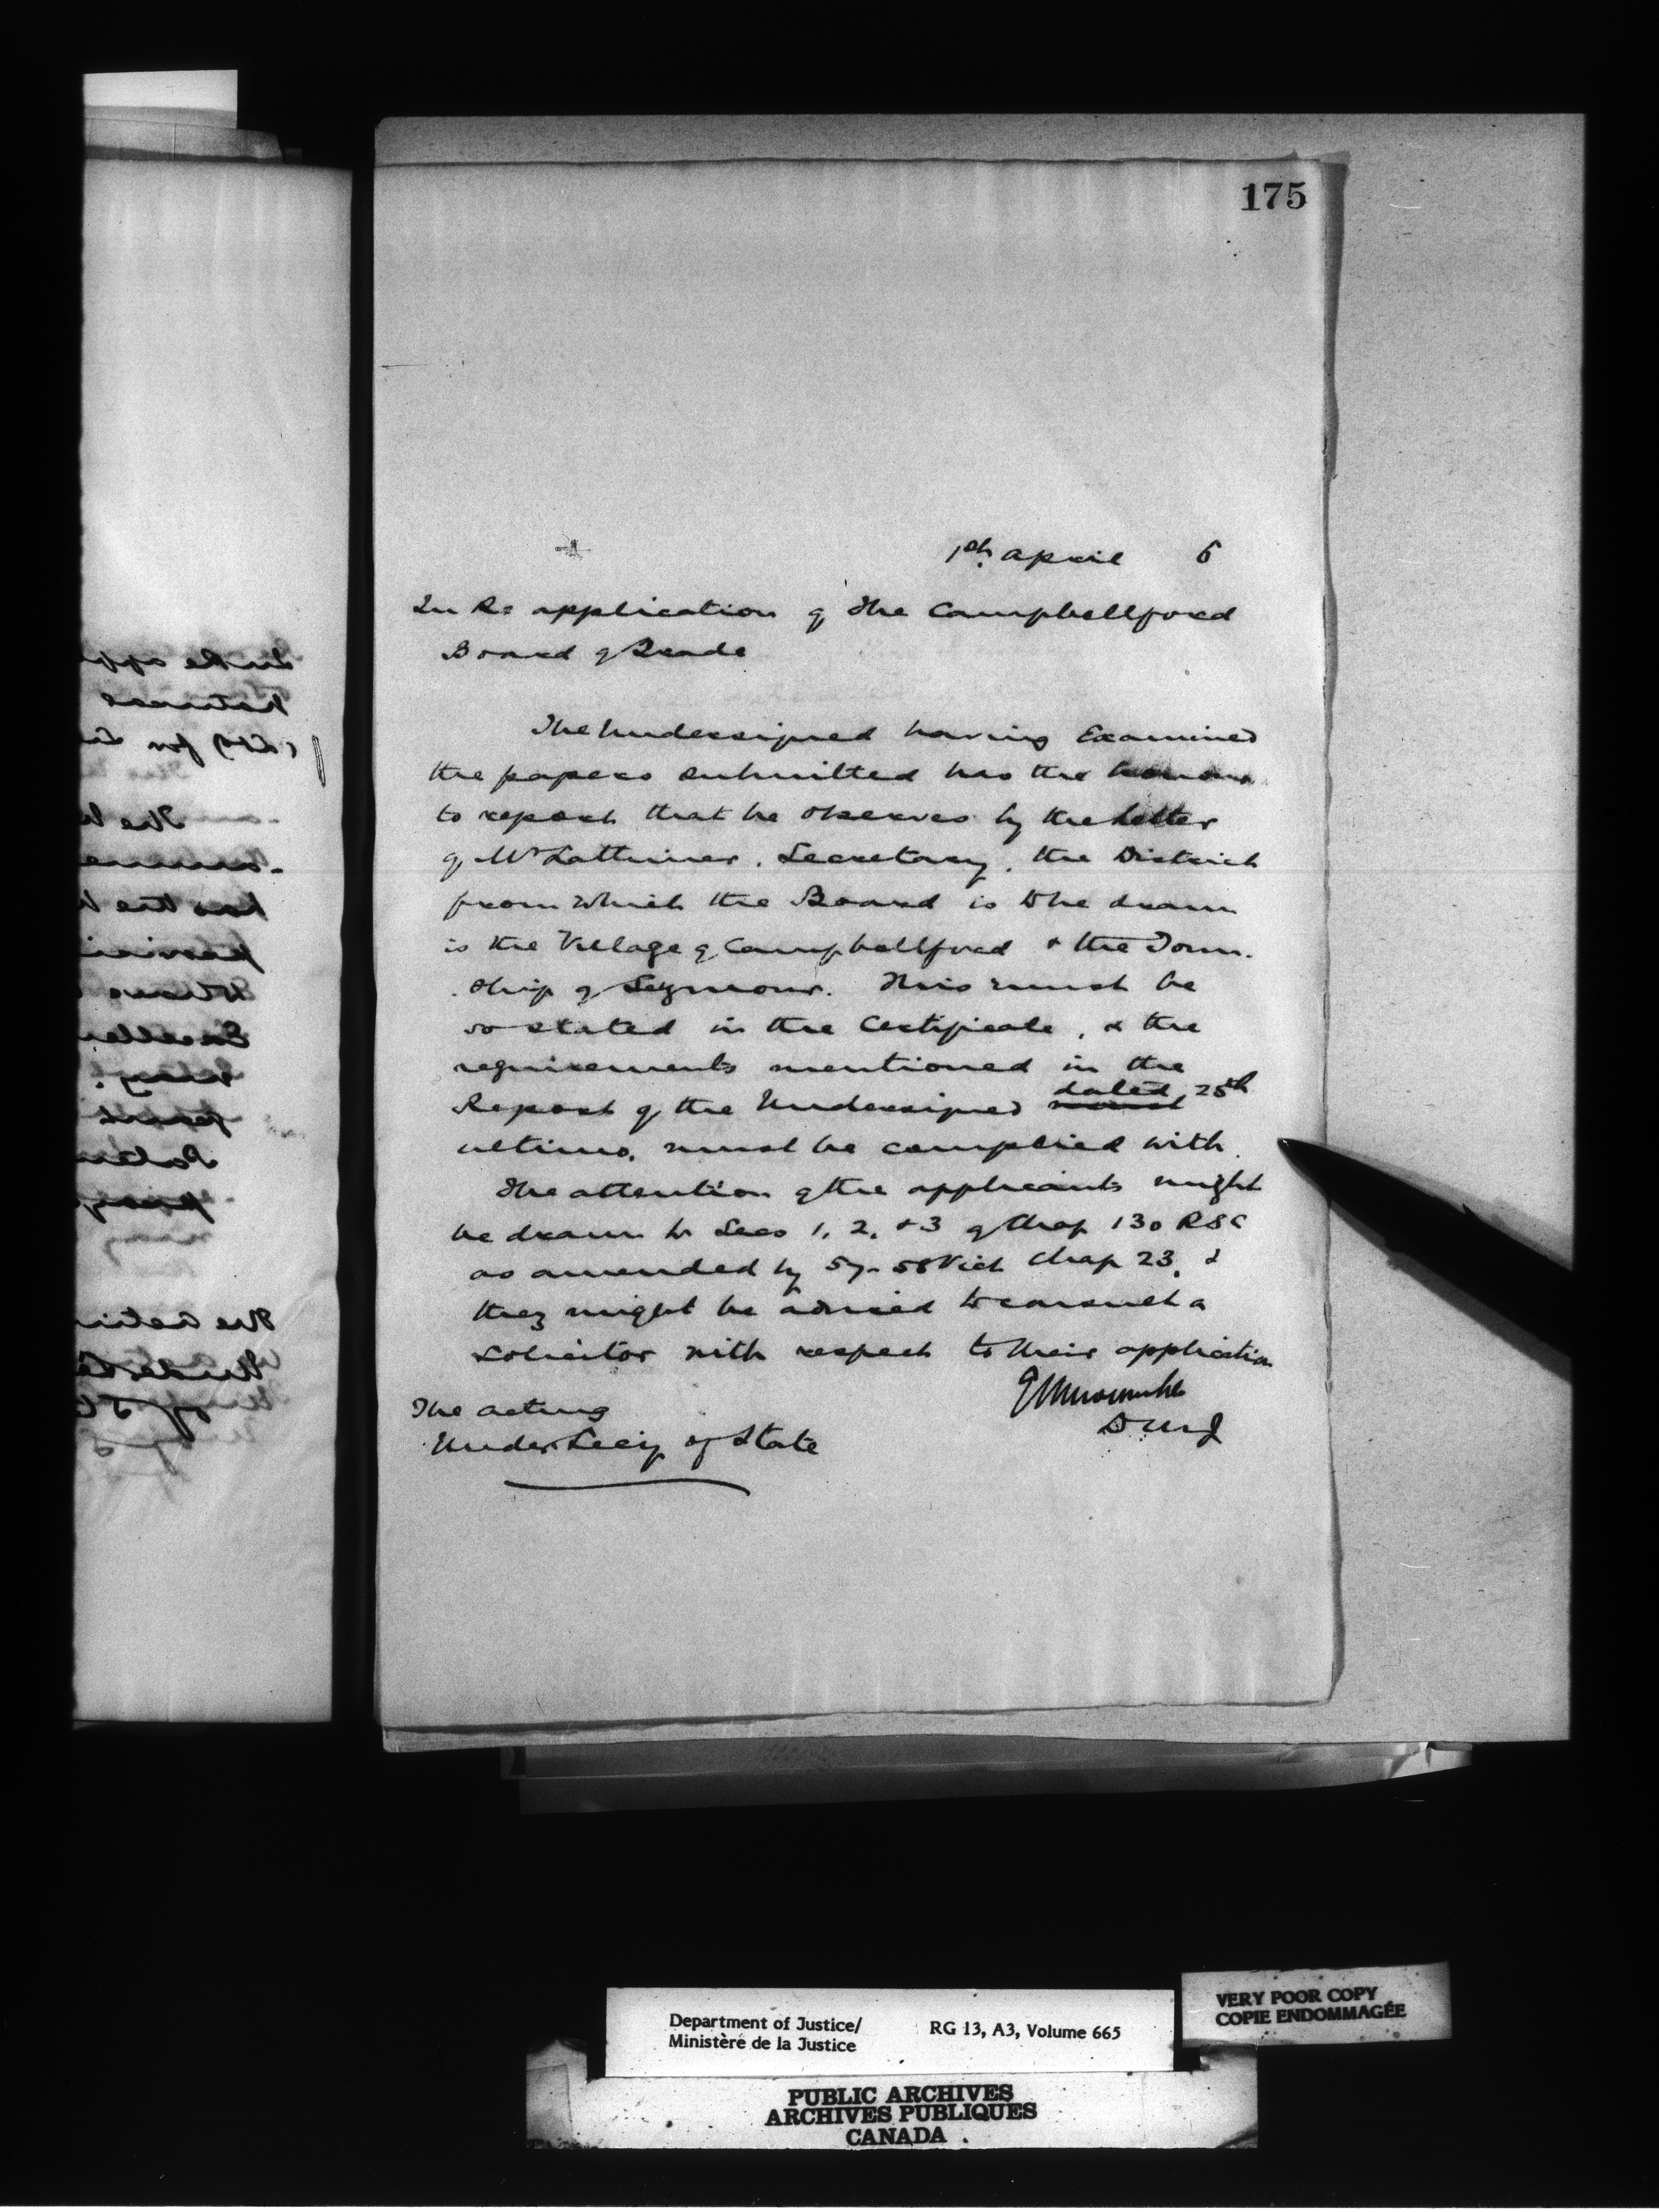 175
1st April 6
In Re application of The Campbellford
Board of Trade
The Undersigned having Examined
the papers submitted has the honour
to report that he observes by the Letter
of Mr Lattimer, Secretary, the District
from which the Board is to be drawn
is the Village of Campbellford & the Town-
ship of Seymour. This must be
so stated in the Certificate, & the
requirements mentioned in the
Report of the Undersigned dated 25th
ultimo, must be complied with.
The attention of the applicants might
be drawn to Secs 1, 2, & 3 of Chap 130 RSC
as amended by 57-58 Vict Chap 23, &
they might be advised to consult a
solicitor with respect to their application
E L Newcombe
D M J
The acting
Under Secy of State
Department of Justice/
Ministère de la Justice
RG 13, A3, Volume 665
VERY POOR COPY
COPIE ENDOMMAGÉE
PUBLIC ARCHIVES
ARCHIVES PUBLIQUES
CANADA